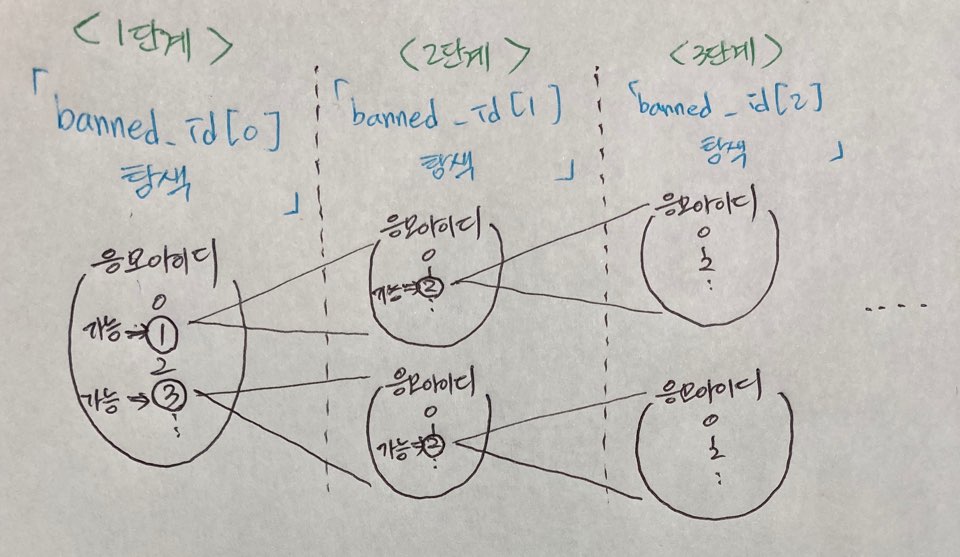 <1단계>
「banned_id[0]
탐색」
응모아이디
0
가능⇒①
2
가능⇒③
⋮
<2단계>
「banned_id[1]
탐색」
응모아이디
0
1
가능⇒②
⋮
응모아이디
0
1
가능⇒②
⋮
<3단계>
「banned_id[2]
탐색」
응모아이디
0
1
2
⋮
응모아이디
0
1
2
⋮
....